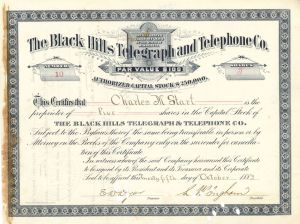 The Black Hills Telegraph and Telephone Co.
PAR VALUE $100
NUMBER
10
AUTHORIZED CAPITAL STOCK $250,000.
This Certifies that Charles M. is the
proprietor of Five shares in the Capital Stock of
THE BLACK HILLS TELEGRAPH & TELEPHONE CO.
Subject to the Bylaws thereof the same being transferable in person or by
Attorney on the Books of the Company only on the surrender or cancellation
of this Certificate.
In witness whereof the said Company has caused this Certificate
to be signed by its President and its Treasurer and its Corporate
Seal to be affixed this day of October